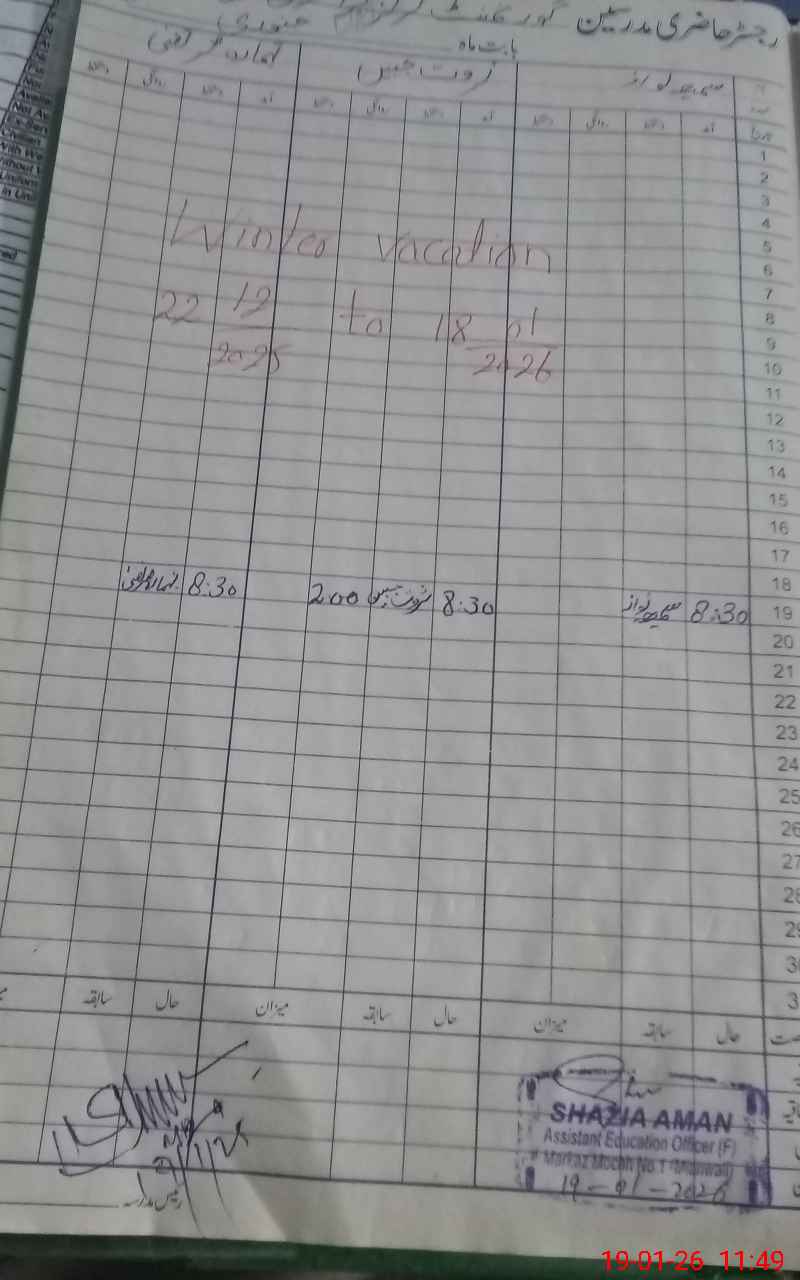 رجسٹر حاضری مدرسین گورنمنٹ گرلز
بابت ماہ جنوری
سمیعہ نواز ثروت جبیں
آمد روانگی آمد روانگی آمد روانگی
تاریخ
1
2
3
4
5
6
7
8
9
10
11
12
13
14
15
16
17
18
19
20
21
22
23
24
25
26
27
28
29
30
3
Winter vacation
22 12/2025 to 18 01/2026
8:30 سمیعہ نواز 8:30 ثروت جبیں 2:00 8:30
حال سابقہ میزان حال سابقہ میزان حال سابقہ
SHAZIA AMAN
Assistant Education Officer (F)
Markaz Mochh No.1 Mianwali
19-01-2026
رئیس مدرسہ
19-01-26 11:49